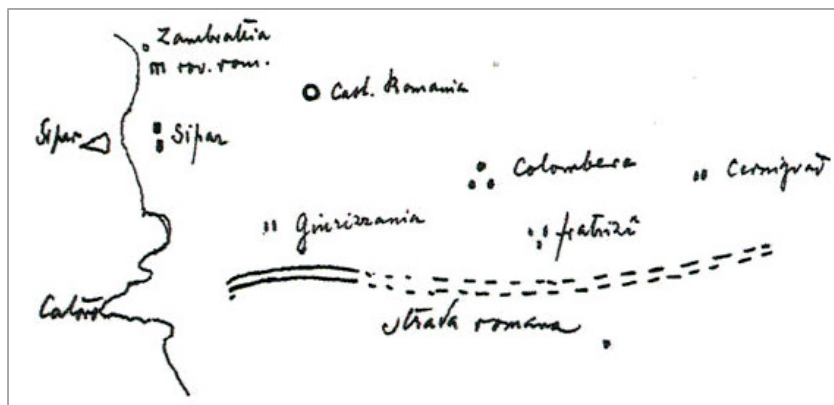 Zambrattia
m rov. rom.
Cast. Romania
Sipar
Sipar
Colombera
Cernigrad
Giurizzania
fratrizi
Catoro
strada romana